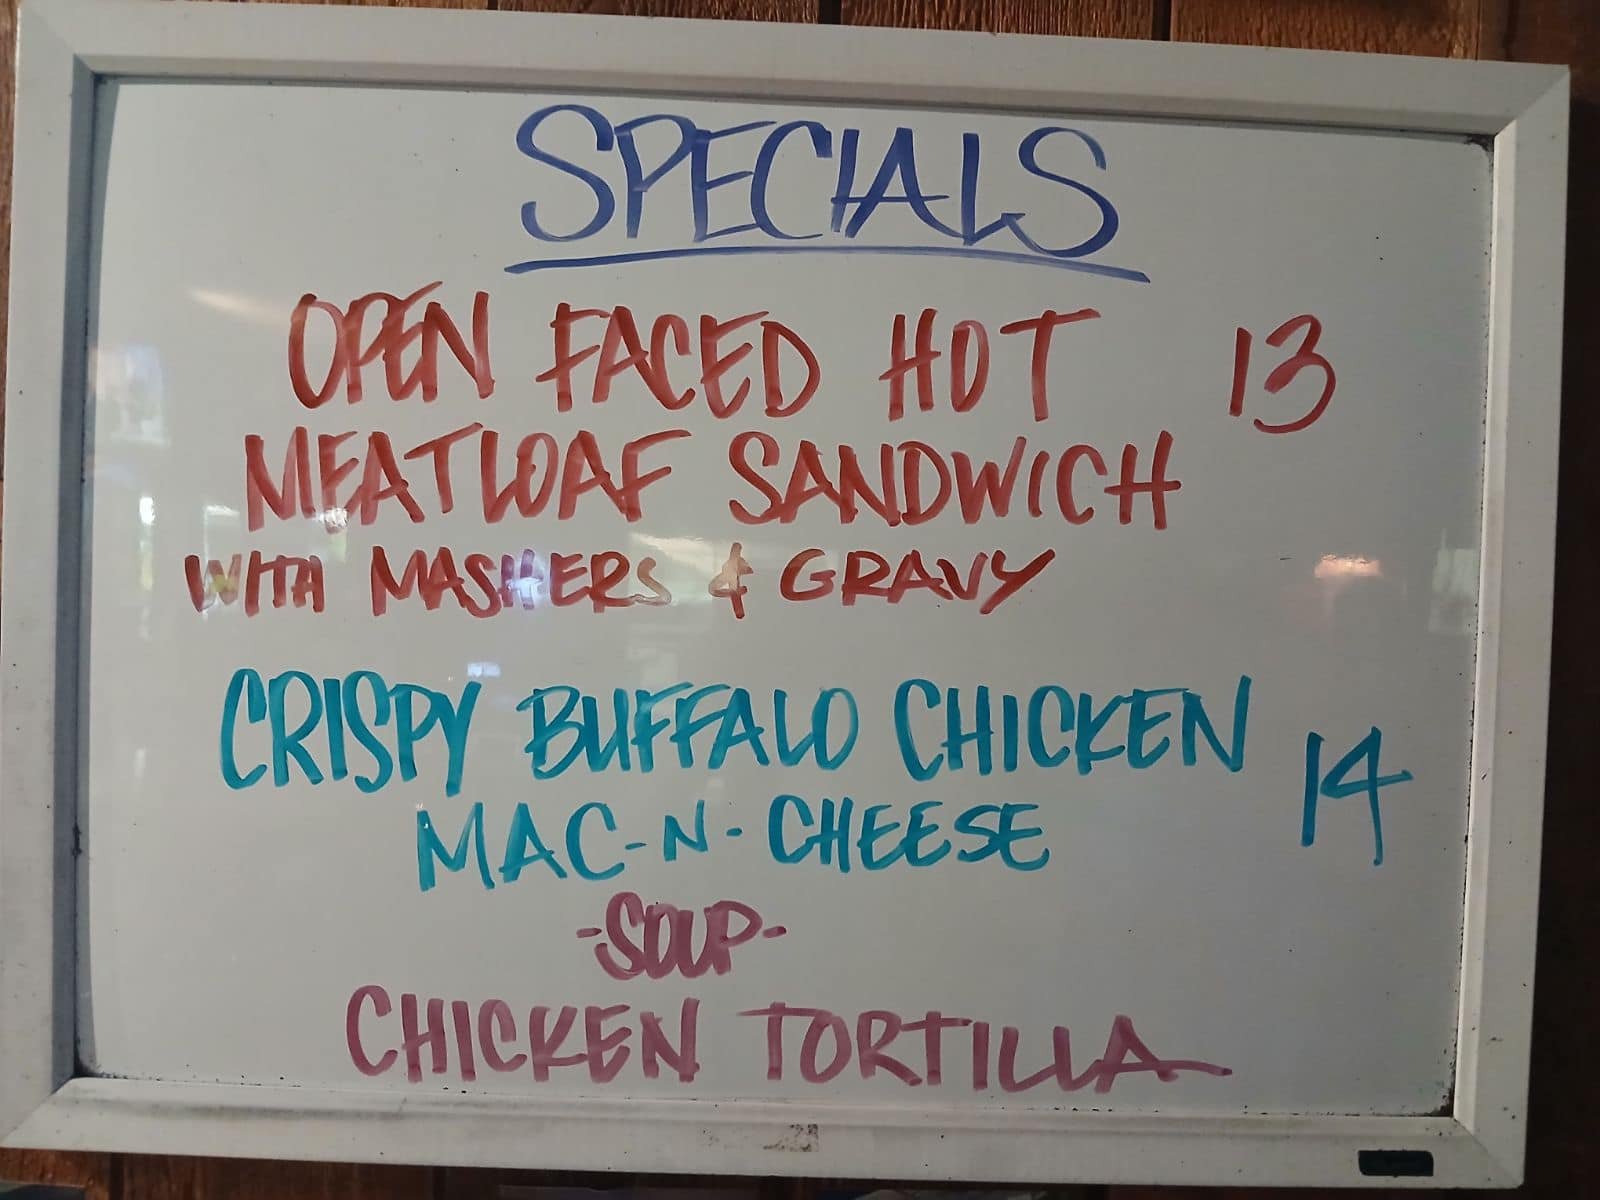 SPECIALS
OPEN FACED HOT 13
MEATLOAF SANDWICH
WITH MASHERS & GRAVY
CRISPY BUFFALO CHICKEN 14
MAC-N-CHEESE
-SOUP-
CHICKEN TORTILLA